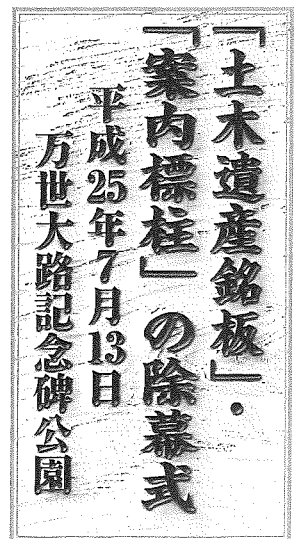 「土木遺産銘板」・
「案内標柱」の除幕式
平成25年7月13日
万世大路記念碑公園